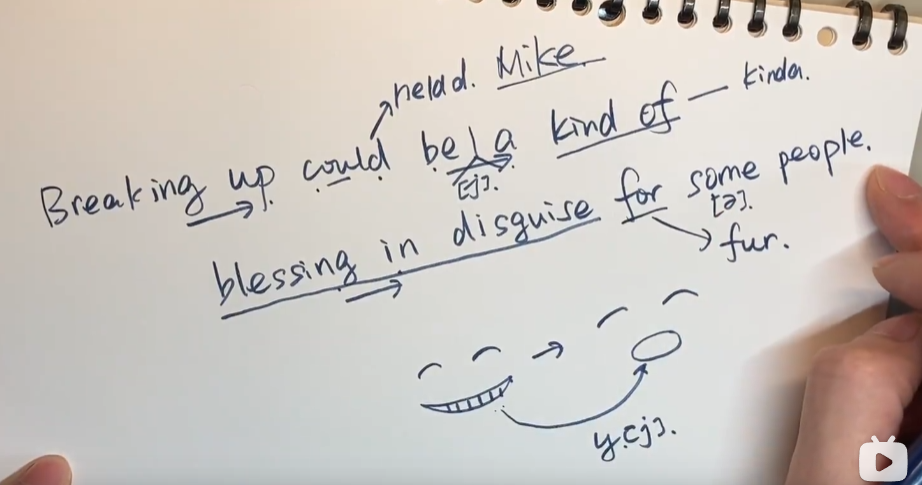 held. Mike
Breaking up could be a kind of — kinda.
[j].
blessing in disguise for some people.
[ə].
fur.
y[j].